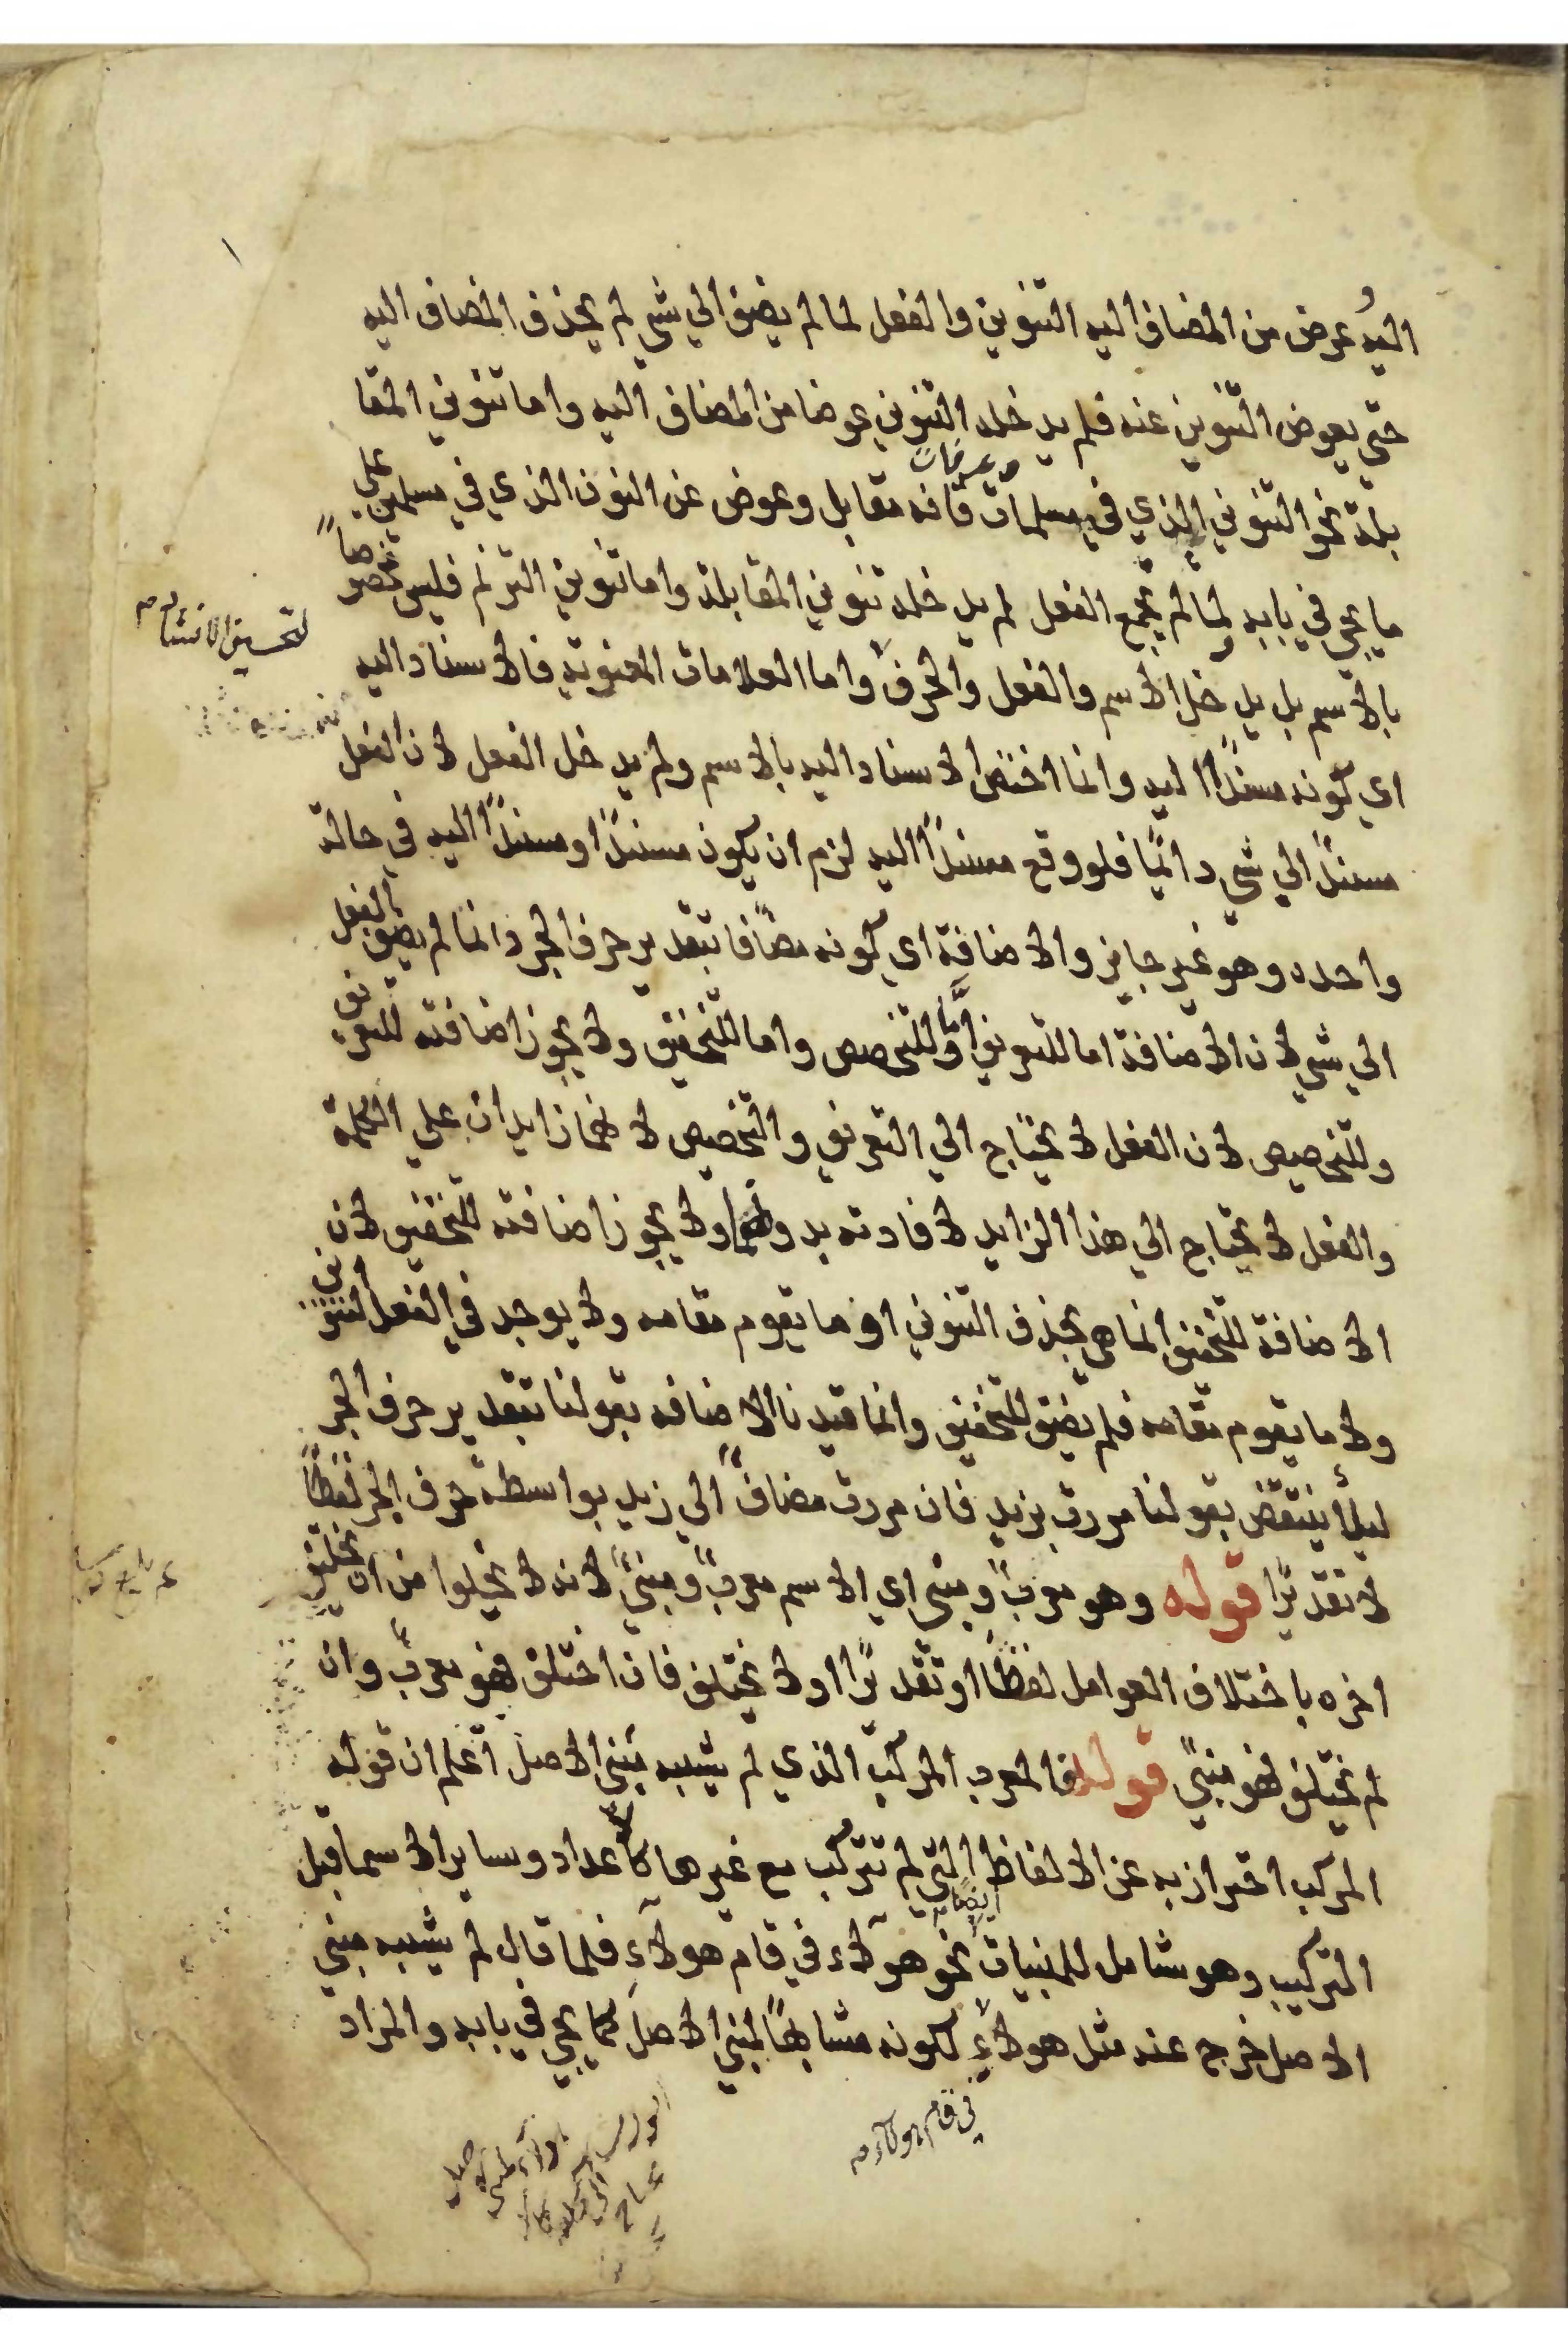 اليه وعوض من المضاف اليه التنوين والفعل لما لم يضف الي شي لم يحذف المضاف اليه
حتي يعوض التنوين عنه فلم يدخله التنوين عوضا من المضاف اليه واما تنوين المقا
بلة نحو التنوين الذي في مسلمات وعرفات فانه مقابل وعوض عن النون الذي في مسلمين علي
ما يجي في بابه ولما لم يجمع الفعل لم يدخله تنوين المقابلة واما تنوين الترنم فليس مختصاً
لتحسين الانشاد
بالاسم بل يدخل الاسم والفعل والحرف واما العلامات المعنوية فالاسناد اليه
اي كونه مسنداً اليه وانما اختص الاسناد اليه بالاسم ولم يدخل الفعل لان الفعل
مسنداً الي شي دائماً فلو وقع مسنداً اليه لزم ان يكون مسنداً او مسنداً اليه في حالة
واحده وهو غير جايز والاضافة اي كونه مضافا بتقدير حرف الجر وانما لم يضف الفعل
الي شي لان الاضافة اما للتعريف واما للتخصيص واما للتخفيف ولا يجوز اضافته للتعريف
وللتخصيص لان الفعل لا يحتاج الي التعريف والتخصيص لانهما زايدان علي الكلمة
والفعل لا يحتاج الي هذا الزايد لافادته بدونهما ولا يجوز اضافته للتخفيف لان
الاضافة للتخفيف انما هي بحذف التنوين او ما يقوم مقامه ولا يوجد في الفعل التنوين
ولا ما يقوم مقامه فلم يضف للتخفيف وانما قيدنا الاضافه بقولنا بتقدير حرف الجر
ليلأ ينتقض بقولنا مررت بزيد فان مررت مضاف الي زيد بواسطة حرف الجر لفظاً
لا تقديرًا قوله وهو معربٌ ومبني اي الاسم معربٌ ومبنيٌّ لانه لا يخلوا من ان يختلف
اخره باختلاف العوامل لفظًا او تقديرًا اولا يختلف فان اختلف فهو معربٌ وان
لم يختلف فهو مبنيٌّ قوله فالمعرب المركب الذي لم يشبه مبني الاصل اعلم ان قوله
المركب احتراز به عن الالفاظ التي لم تتركب مع غيرها كالاعداد وساير الاسما قبل
التركيب وهو شامل للمبنيات ايضًا نحو هولاء في قام هولآءِ فلما قال لم يشبه مبني
الاصل خرج عنه مثل هولآءِ لكونه مشابهًا لمبني الاصل كما يجي في بابه والمراد
في قام هولاء